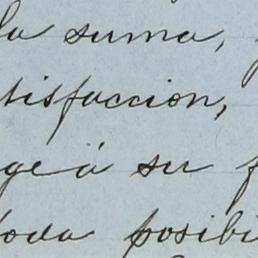 la suma,
tisfaccion,
ge á su f
toda posibi